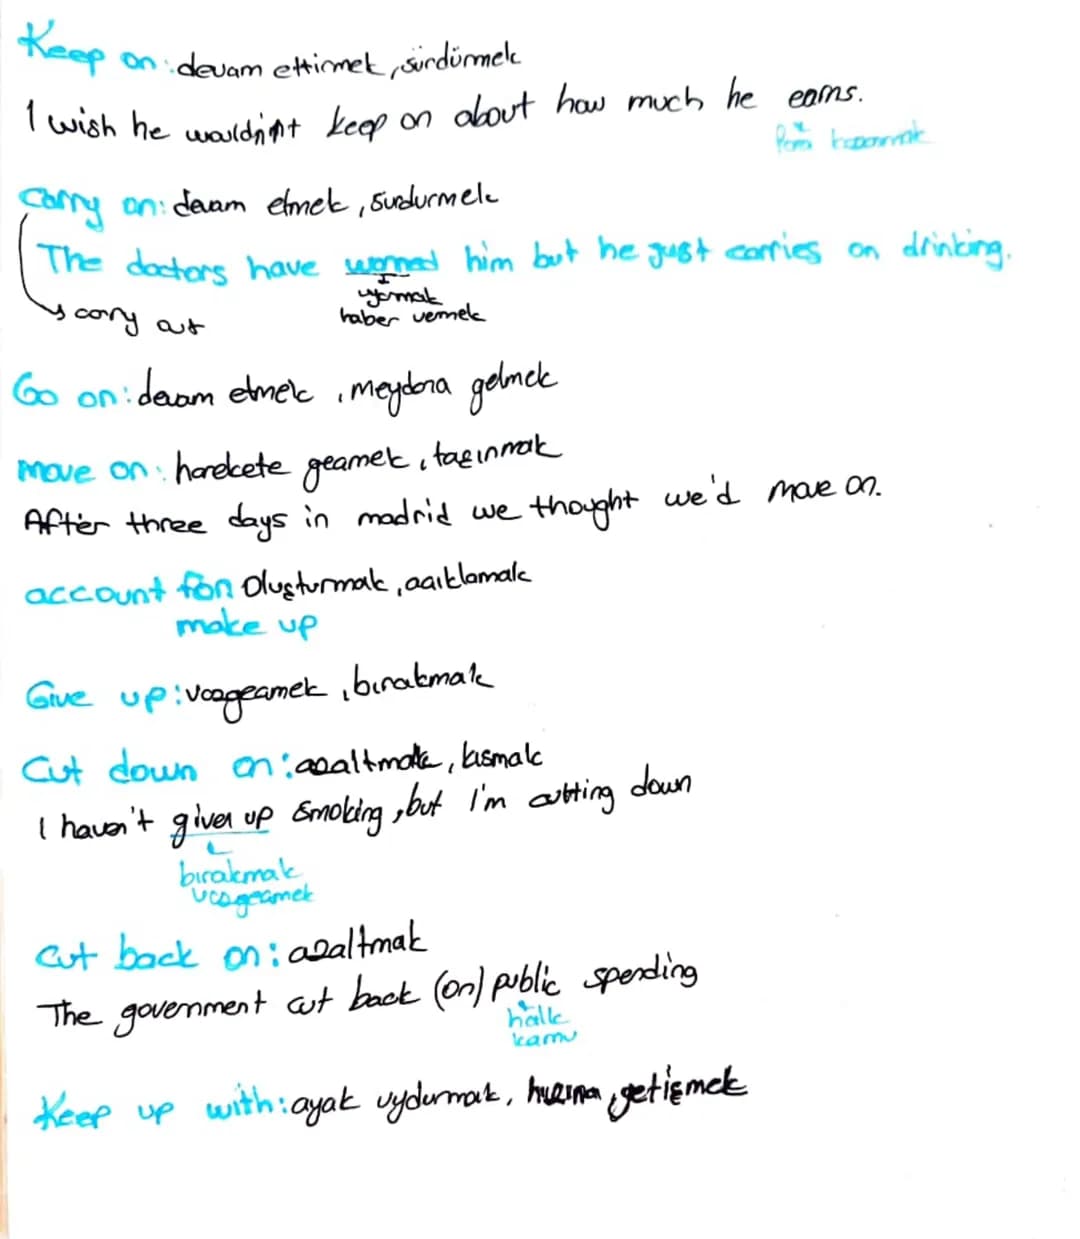 Keep on: devam ettirmek, sürdürmek
I wish he wouldn't keep on about how much he earns.
Para kazanmak
Carry on: devam etmek, surdurmek
The doctors have warned him but he just carries on drinking.
uyarmak
haber vermek
carry out
Go on: devam etmek, meydana gelmek
move on: harekete geçmek, taşınmak
After three days in madrid we thought we'd move on.
account for: Oluşturmak, açıklamak
make up
Give up: vazgeçmek, bırakmak
Cut down on: azaltmak, kısmak
I haven't given up smoking, but I'm cutting down
bırakmak
vazgeçmek
Cut back on: azaltmak
The government cut back (on) public spending
halk
kamu
Keep up with: ayak uydurmak, hızına yetişmek